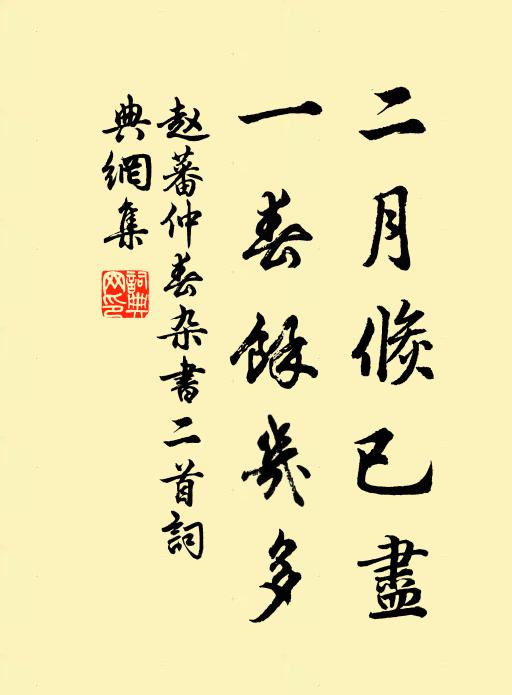 二月倏已盡
一春餘幾多
赵蕃仲春杂書二首詞
典網集
詞典網印